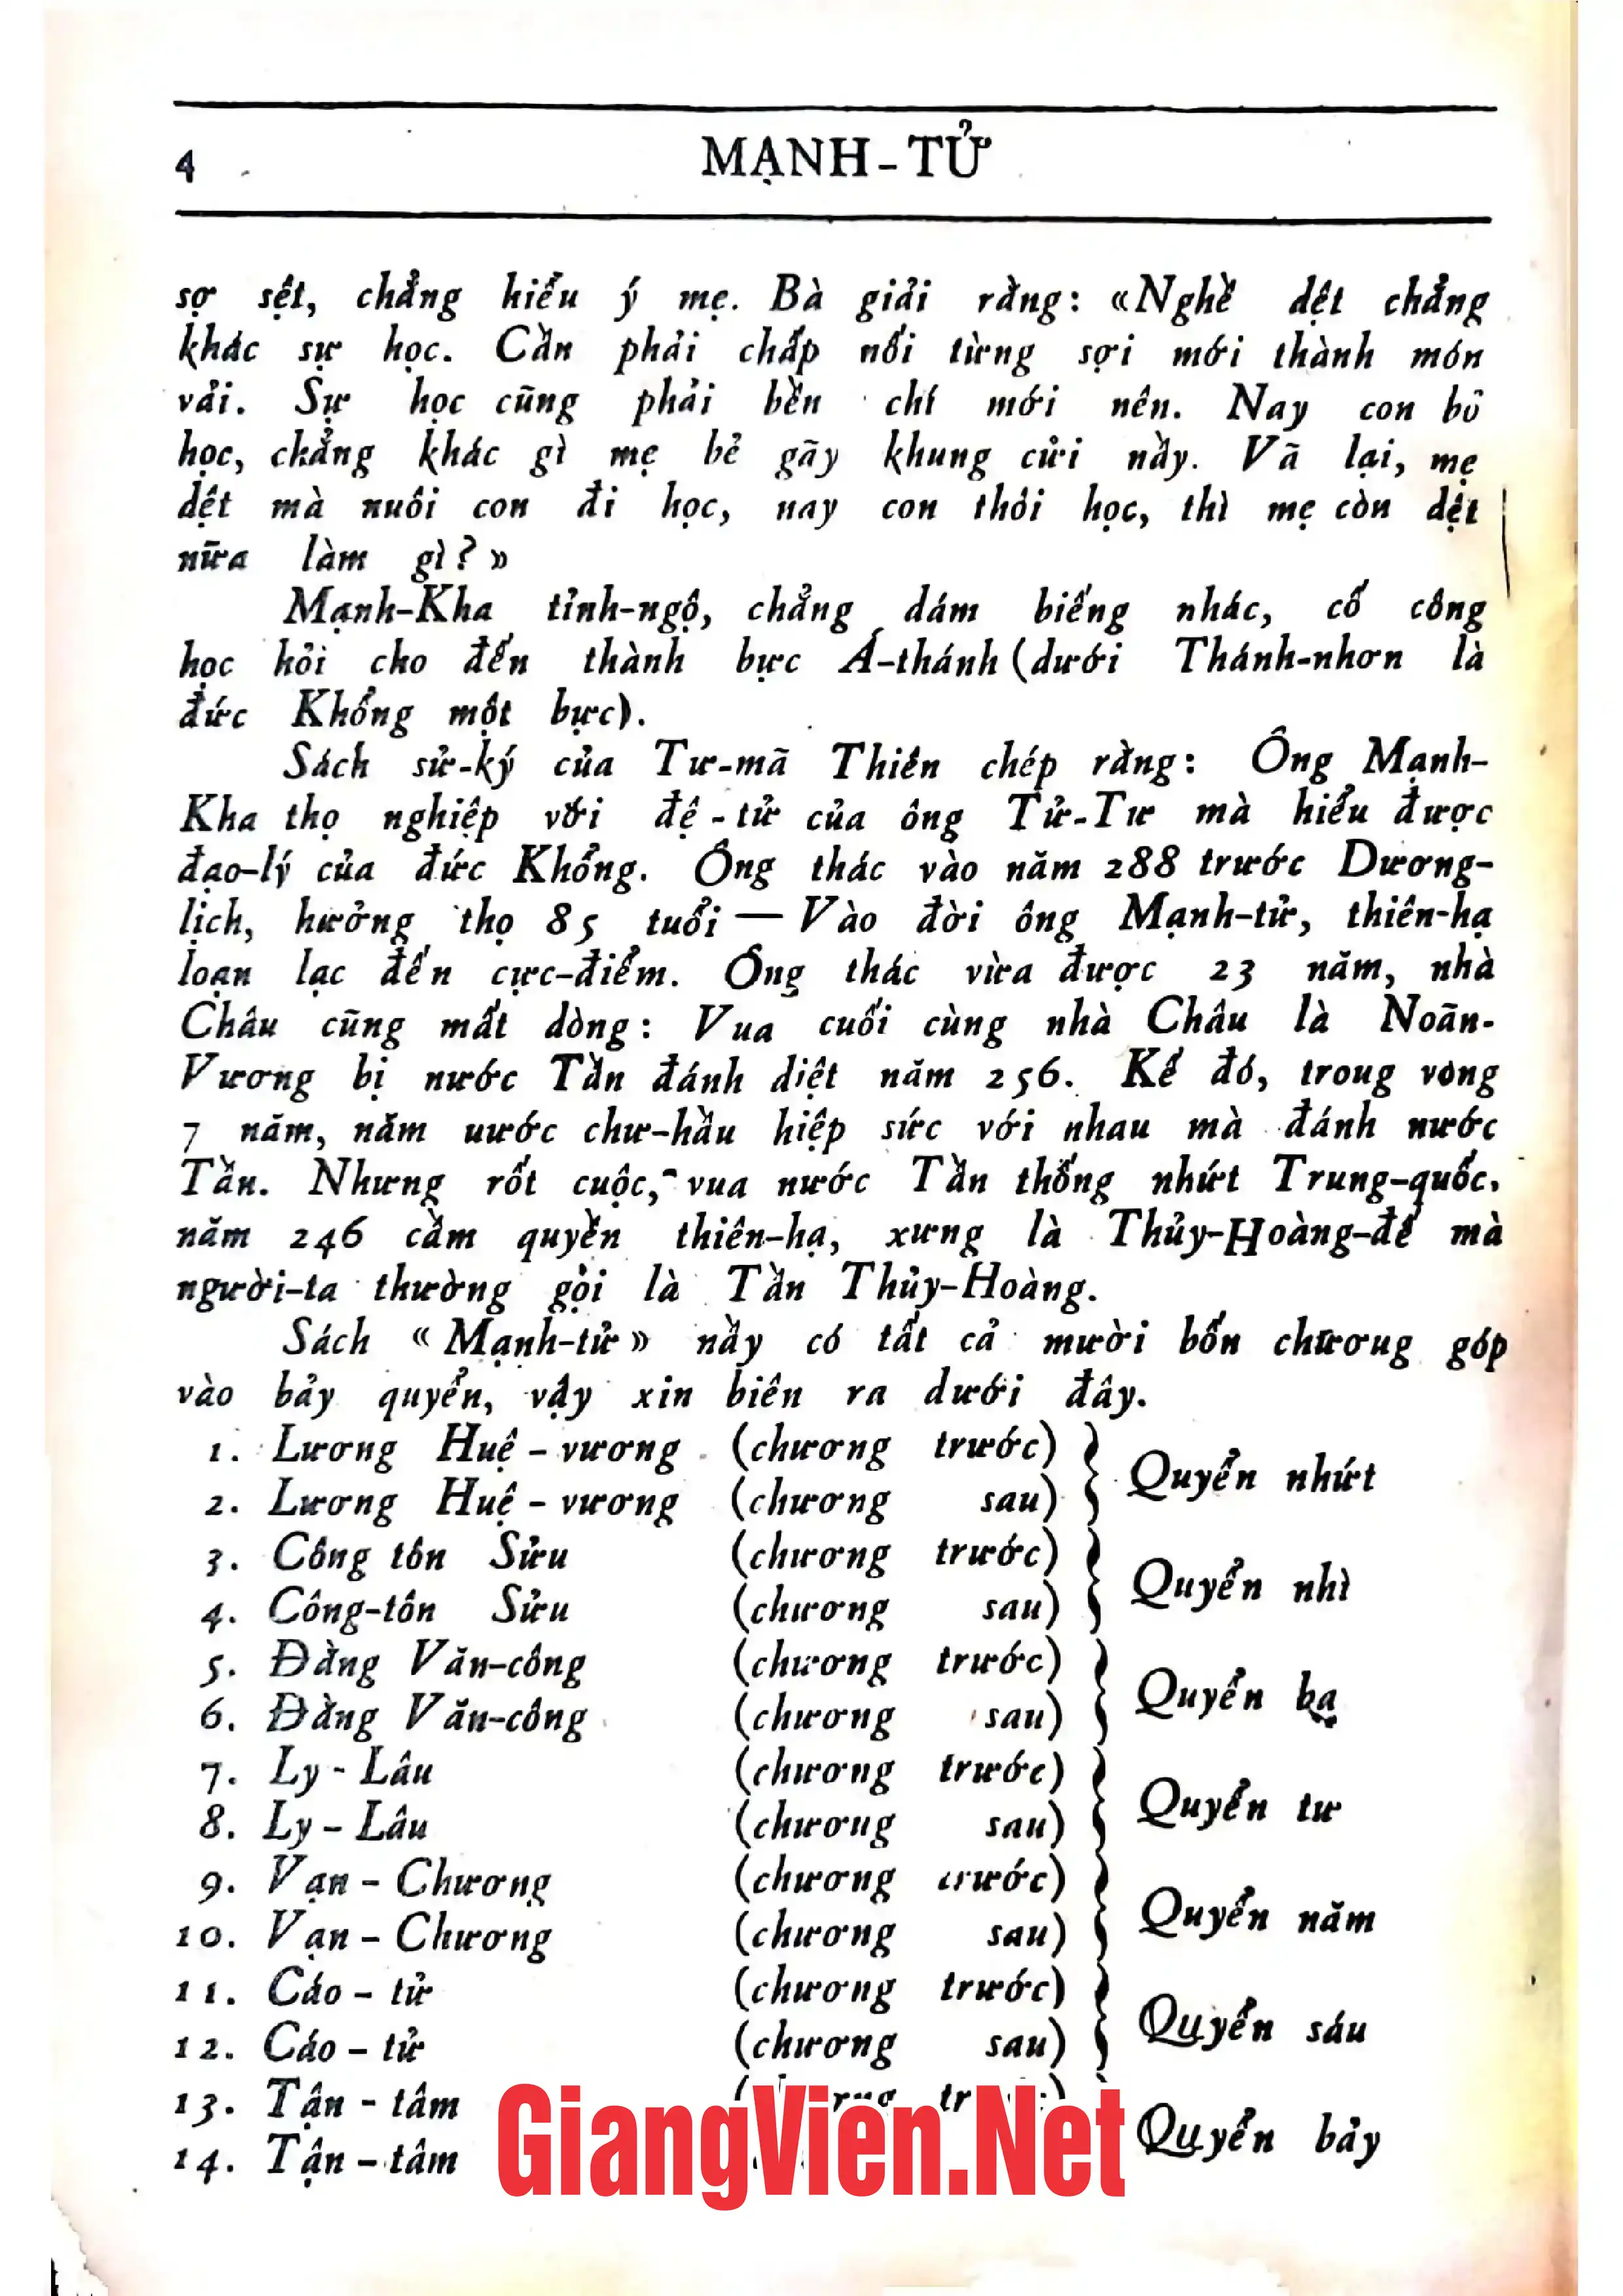 4
MẠNH-TỬ
sợ sệt, chẳng hiểu ý mẹ. Bà giải rằng: «Nghề dệt chẳng
khác sự học. Cần phải chấp nối từng sợi mới thành món
vải. Sự học cũng phải bền chí mới nên. Nay con bỏ
học, chẳng khác gì mẹ bẻ gãy khung cửi nầy. Vã lại, mẹ
dệt mà nuôi con đi học, nay con thôi học, thì mẹ còn dệt
nữa làm gì?»
Mạnh-Kha tỉnh-ngộ, chẳng dám biếng nhác, cố công
học hỏi cho đến thành bực Á-thánh (dưới Thánh-nhơn là
đức Khổng một bực).
Sách sử-ký của Tư-mã Thiên chép rằng: Ông Mạnh-
Kha thọ nghiệp với đệ-tử của ông Tử-Tư mà hiểu được
đạo-lý của đức Khổng. Ông thác vào năm 288 trước Dương-
lịch, hưởng thọ 85 tuổi — Vào đời ông Mạnh-tử, thiên-hạ
loạn lạc đến cực-điểm. Ông thác vừa được 23 năm, nhà
Châu cũng mất dòng: Vua cuối cùng nhà Châu là Noãn-
Vương bị nước Tần đánh diệt năm 256. Kế đó, troug vòng
7 năm, năm uước chư-hầu hiệp sức với nhau mà đánh nước
Tần. Nhưng rốt cuộc, vua nước Tần thống nhứt Trung-quốc,
năm 246 cầm quyền thiên-hạ, xưng là Thủy-Hoàng-đế mà
người-ta thường gọi là Tần Thủy-Hoàng.
Sách «Mạnh-tử» nầy có tất cả mười bốn chươug góp
vào bảy quyển, vậy xin biên ra dưới đây.
1. Lương Huệ-vương (chương trước)
Quyển nhứt
2. Lương Huệ-vương (chương sau)
3. Công tôn Sửu (chương trước)
Quyển nhì
4. Công-tôn Sửu (chương sau)
5. Đằng Văn-công (chương trước)
Quyển ba
6. Đằng Văn-công (chương sau)
7. Ly-Lâu (chương trước)
Quyển tư
8. Ly-Lâu (chương sau)
9. Vạn-Chương (chương trước)
Quyển năm
10. Vạn-Chương (chương sau)
11. Cáo-tử (chương trước)
Quyển sáu
12. Cáo-tử (chương sau)
13. Tận-tâm
Quyển bảy
14. Tận-tâm
GiangVien.Net